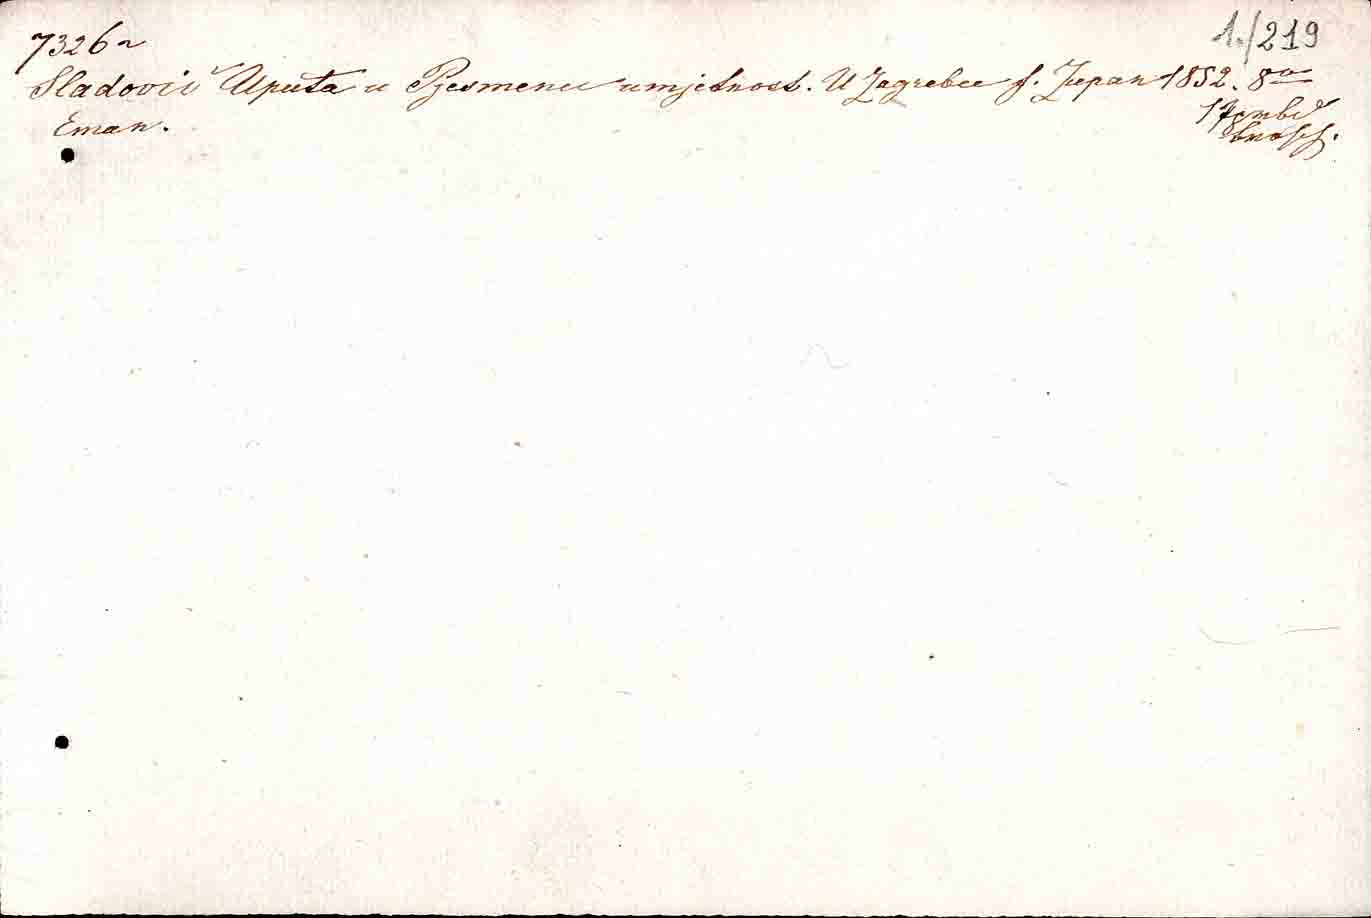 7326
1./219
Sladović Uputa u Pjesmenu umjetnost. U Zagrebu f. Župan 1852. 8º
Eman.
brosch.